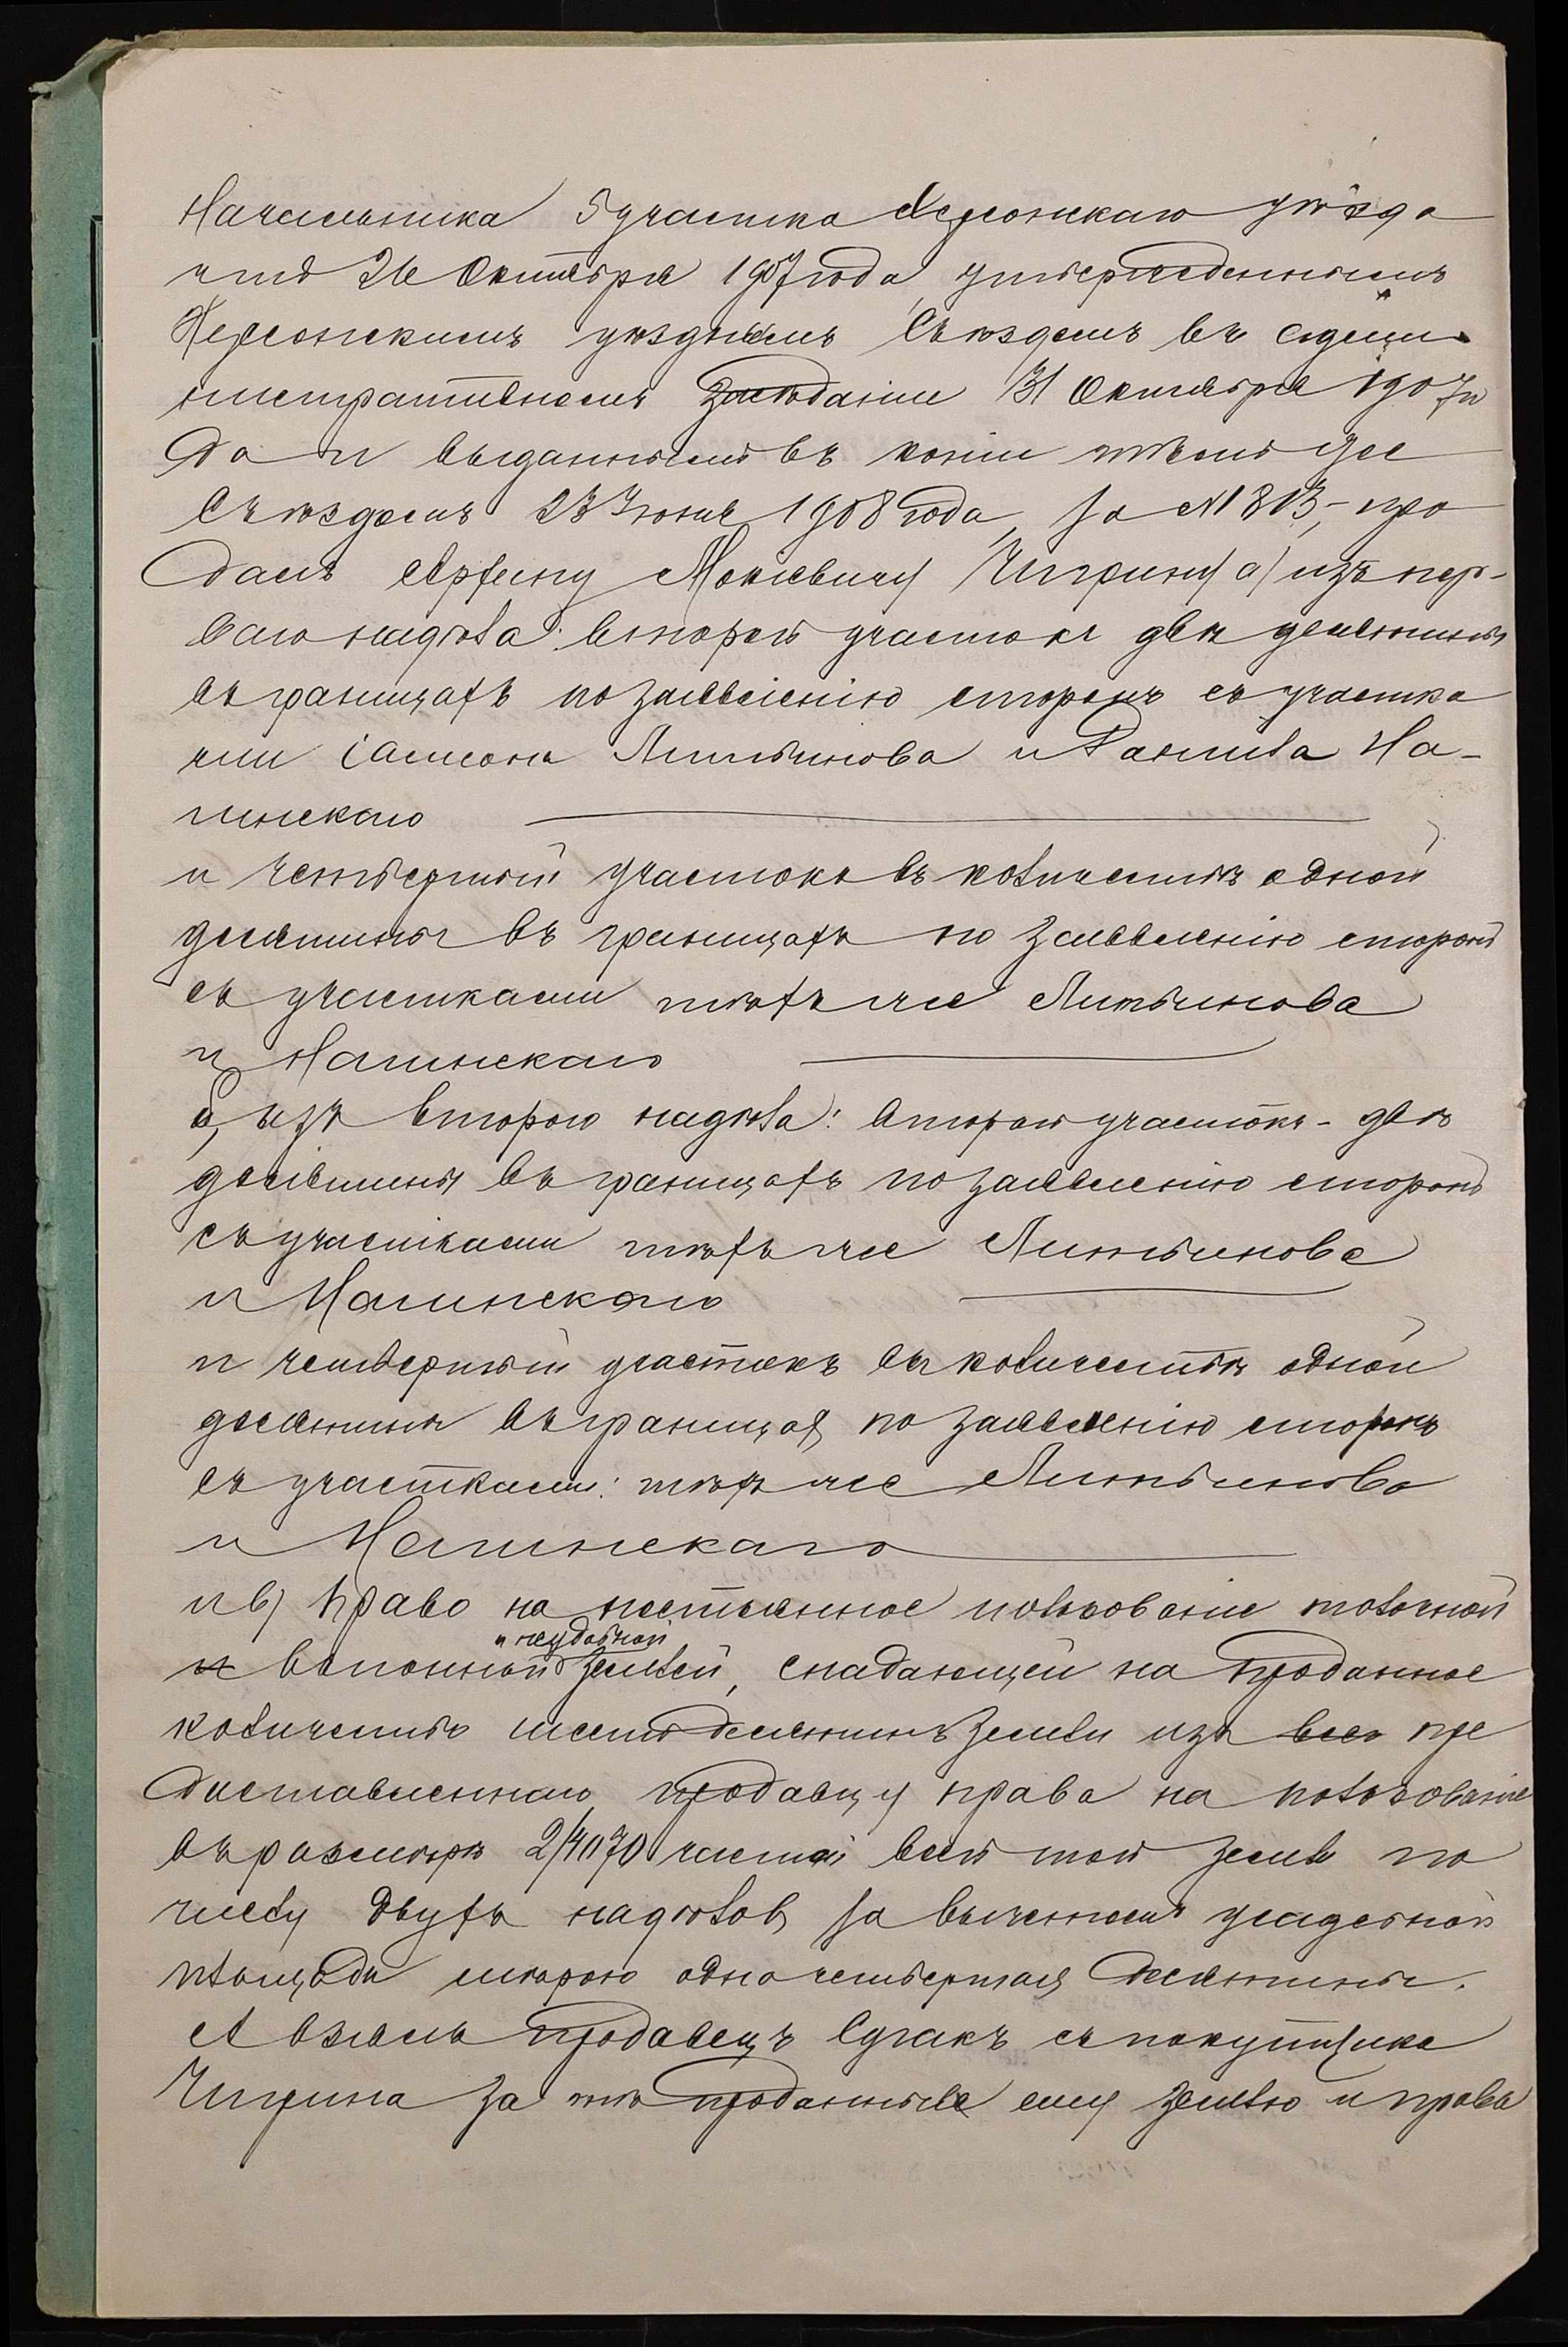 Начальника 5 участка Херсонскаго уѣзда
отъ 26 Октября 1907 года, утвержденнымъ
Херсонскимъ уѣзднымъ Съѣздомъ въ адми
нистративномъ засѣданіи 31 Октября 1907 го
да и выданнымъ въ копіи тѣмъ же
Съѣздомъ 23 Іюня 1908 года, за № 1313,- про
далъ Архипу Мокіевичу Чигрину а) изъ пер-
ваго надѣла: второй участокъ двѣ десятины
въ границахъ по заявленію сторонъ съ участка
ми Самсона Литвинова и Данила На-
гинскаго
и четвертый участокъ въ количествѣ одной
десятины въ границахъ по заявленію сторонъ
съ участками тѣхъ же Литвинова
и Нагинскаго
б) изъ второго надѣла: второй участокъ - двѣ
десятины въ границахъ по заявленію сторонъ
съ участками тѣхъ же Литвинова
и Нагинскаго
и четвертый участокъ въ количествѣ одной
десятины въ границахъ по заявленію сторонъ
съ участками: тѣхъ же Литвинова
и Нагинскаго
и в) право на постоянное пользованіе толочной
и выгонной и неудобной землей, спадающей на проданное
количество шесть десятинъ земли изъ всего пре
доставленнаго продавцу права на пользованіе
въ размѣрѣ 2/4070 частей всей той земли по
числу двухъ надѣловъ за вычетомъ усадебной
площади мѣрою одна четвертая десятины.
А взялъ продавецъ Сугакъ съ покупщика
Чигрина за тѣ проданныя ему землю и права